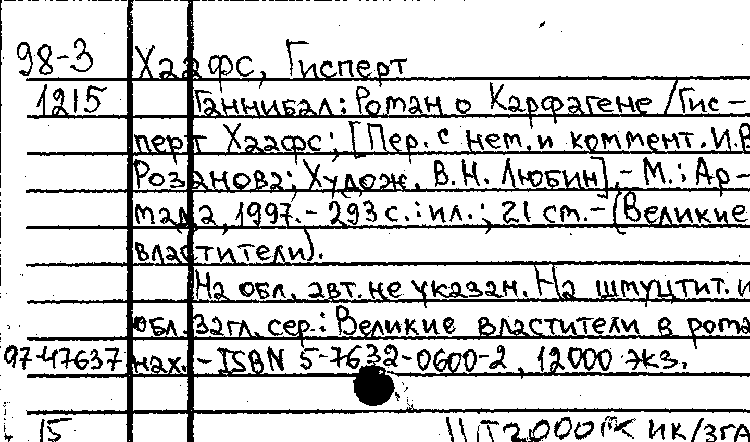 98-3 Хаафс, Гисперт
1215 Ганнибал: Роман о Карфагене / Гис-
перт Хаафс; [Пер. с нем. и коммент. И.В.
Розанова; Худож. В.Н. Любин]. - М.: Ар-
мада, 1997. - 293 с.: ил.; 21 см. - (Великие
властители).
На обл. авт. не указан. На шмуцтит. и
обл. загл. сер.: Великие властители в рома-
97-47637 нах. - ISBN 5-7632-0600-2, 12000 экз.
15